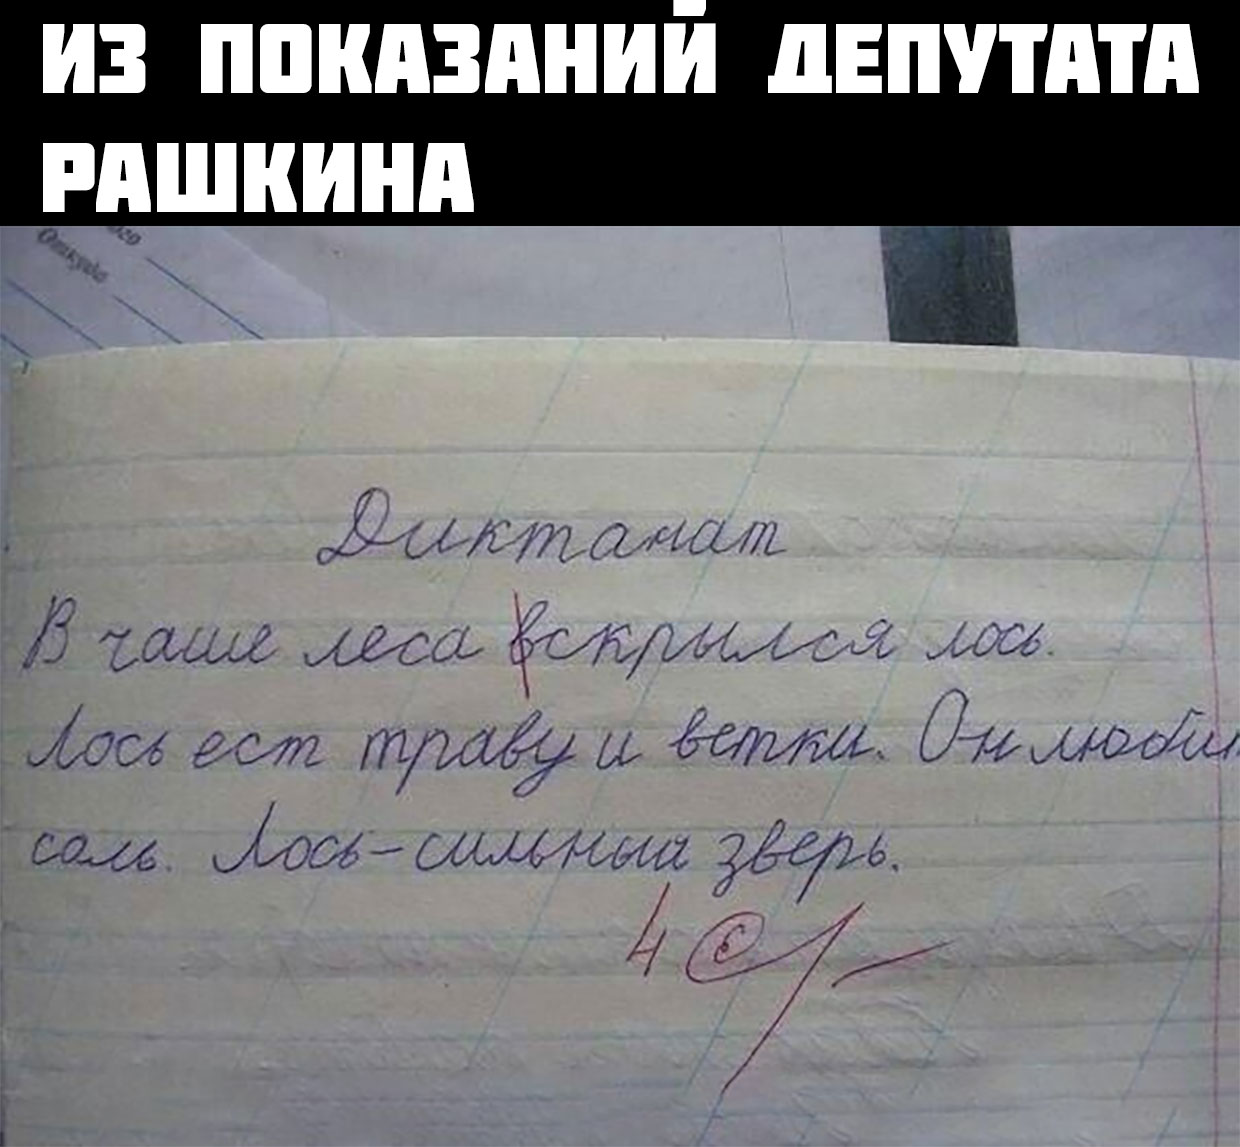 ИЗ ПОКАЗАНИЙ ДЕПУТАТА
РАШКИНА
Откуда
Диктанат
В чаще леса вскрылся лось.
Лось ест траву и ветки. Он любит
соль. Лось - сильный зверь.
4